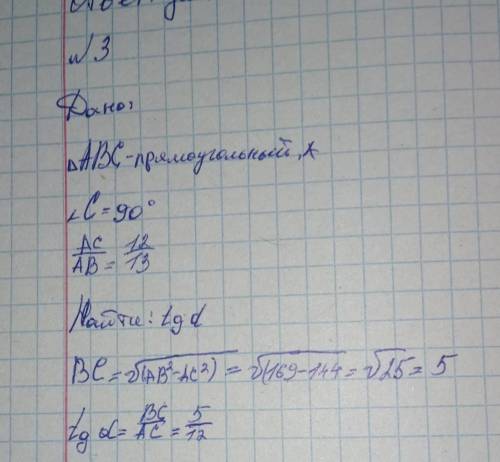 №3
Дано:
△ABC-прямоугольный,
∠C=90°
AC/AB=12/13
Найти: tg α
BC=√(AB²-AC²)=√(169-144=√25=5
tg α=BC/AC=5/12